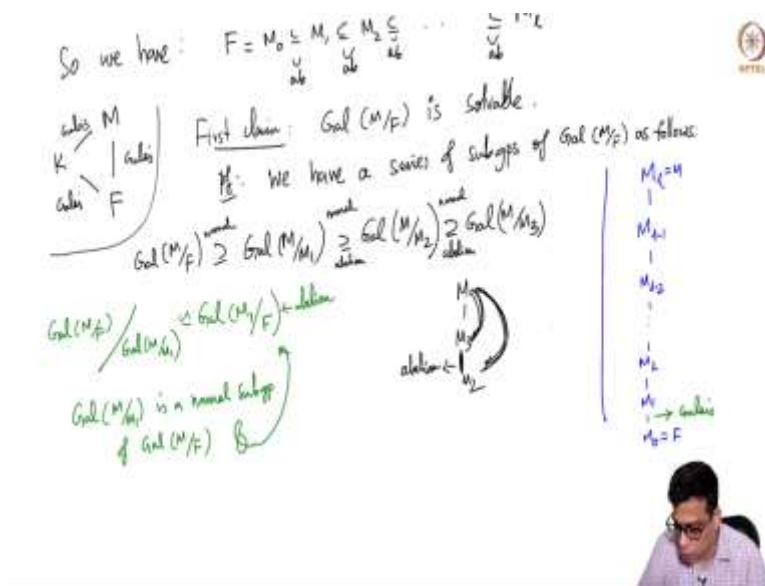 So we have: F = M₀ ⊆ M₁ ⊆ M₂ ⊆ ... ⊆ Mℓ
ab ab ab ab
M
Galois
K Galois
Galois F
First claim: Gal (M/F) is solvable.
Pf: We have a series of subgps of Gal (M/F) as follows
Gal(M/F) ≥ Gal(M/M₁) ≥ Gal(M/M₂) ≥ Gal(M/M₃)
normal normal normal
abelian abelian
Gal(M/F) / Gal(M/M₁) ≅ Gal(M₁/F) ← abelian
Gal(M/M₁) is a normal subgp
of Gal(M/F)
M
M₃
abelian ← M₂
Mℓ = M
Mℓ₋₁
Mℓ₋₂
M₂
M₁
→ Galois
M₀ = F
NPTEL